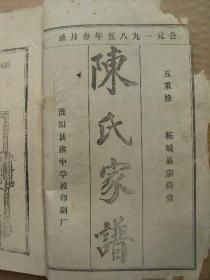 公元一九八五年卷月录
五重修 柘城县宗舜堂
陳氏家譜
淮阳县淮中学校印刷厂